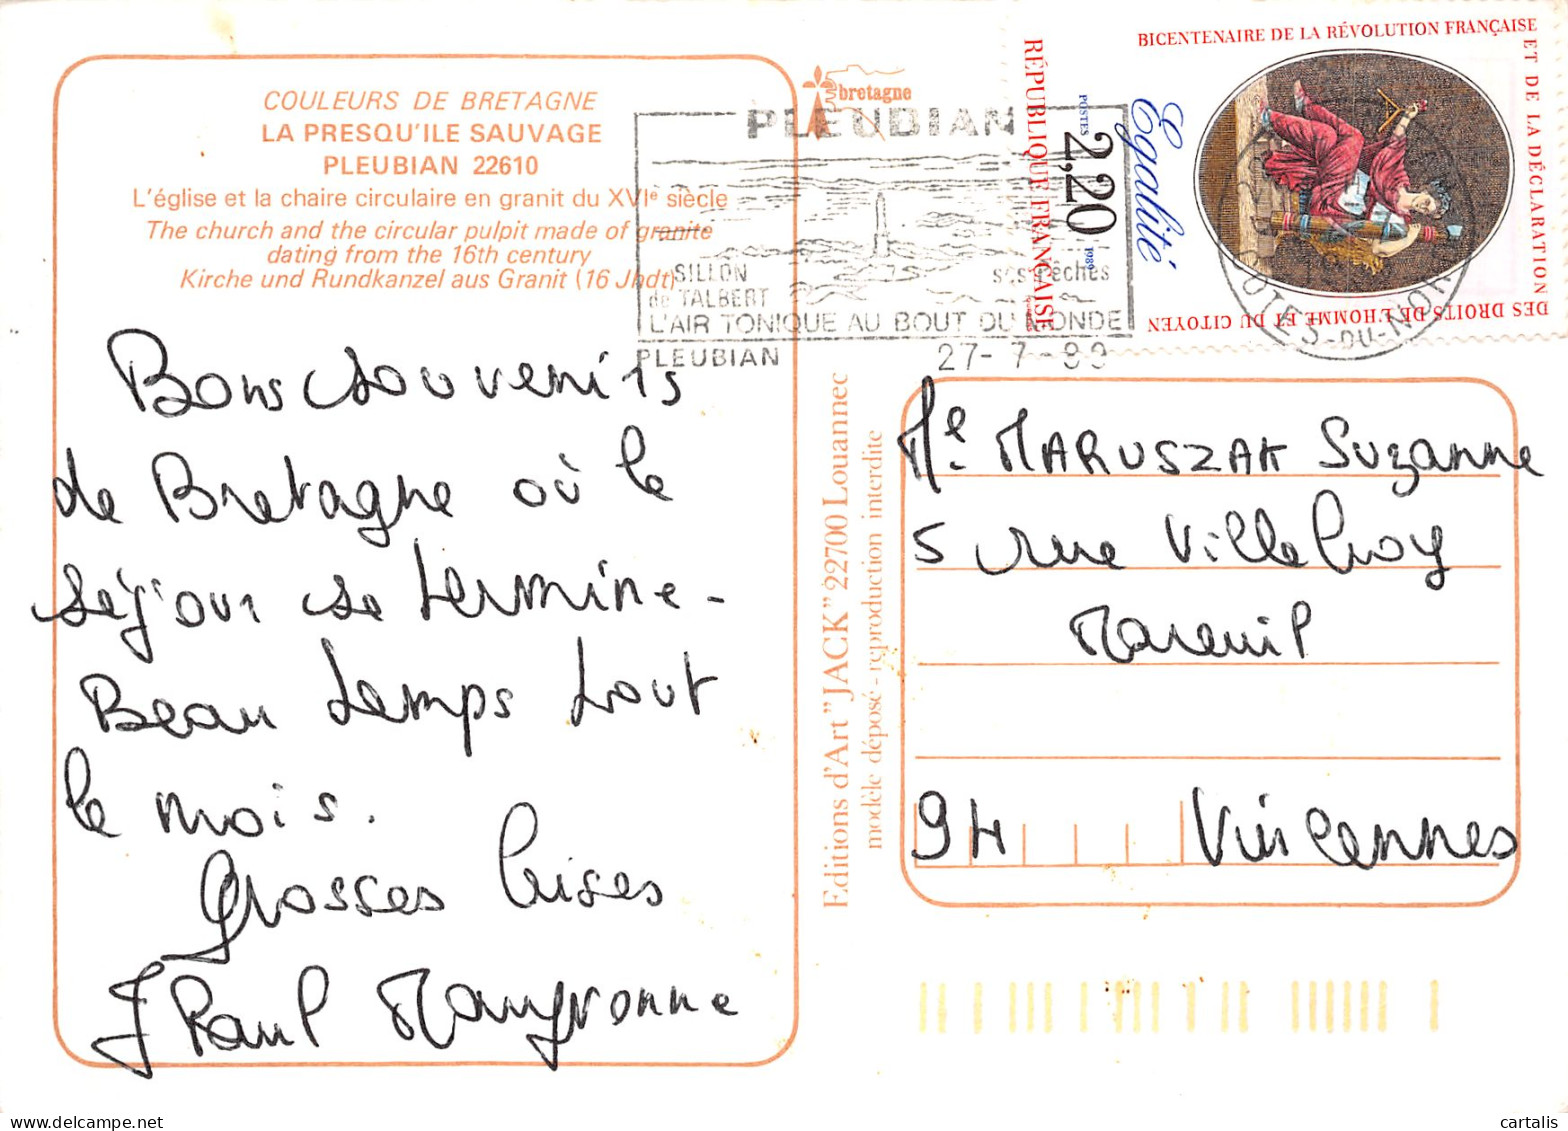 COULEURS DE BRETAGNE
LA PRESQU'ILE SAUVAGE
PLEUBIAN 22610
L'église et la chaire circulaire en granit du XVIe siècle
The church and the circular pulpit made of granite
dating from the 16th century
Kirche und Rundkanzel aus Granit (16 Jhdt)
bretagne
PLEUBIAN
SILLON
de TALBERT
ses Pêches
L'AIR TONIQUE AU BOUT DU MONDE
PLEUBIAN
27-7-89
RÉPUBLIQUE FRANÇAISE
POSTES 2,20 1989
Egalité
BICENTENAIRE DE LA RÉVOLUTION FRANÇAISE
ET DE LA DÉCLARATION
DES DROITS DE L'HOMME ET DU CITOYEN
COTES-DU-NORD
Bons souvenirs
de Bretagne où le
séjour se termine-
Beau temps tout
le mois.
Grosses bises
J Paul
Editions d'Art "JACK" 22700 Louannec
modèle déposé - reproduction interdite
Me MARUSZAK Suzanne
5 rue Villebroy
Mareuil
94 Vincennes
cartalis